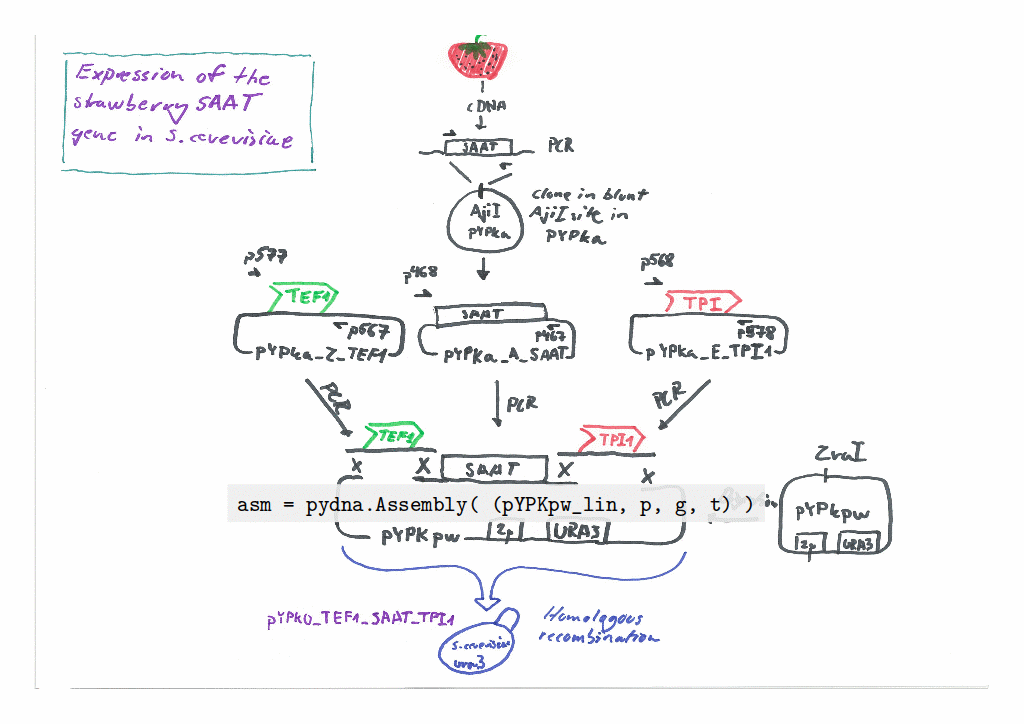 Expression of the
strawberry SAAT
gene in S. cerevisiae
cDNA
SAAT
PCR
AjiI
pYPka
Clone in blunt
AjiI site in
pYPka
p577
TEF1
p567
pYPka_Z_TEF1
p468
SAAT
p467
pYPka_A_SAAT
p568
TPI
p578
pYPka_E_TPI1
PCR
PCR
PCR
TEF1
TPI1
X X SAAT X X
asm = pydna.Assembly( (pYPKpw_lin, p, g, t) )
pYPKpw
2µ
URA3
ZraI
pYPkpw
2µ
URA3
pYPK0_TEF1_SAAT_TPI1
Homologous
recombination
S. cerevisiae
ura3